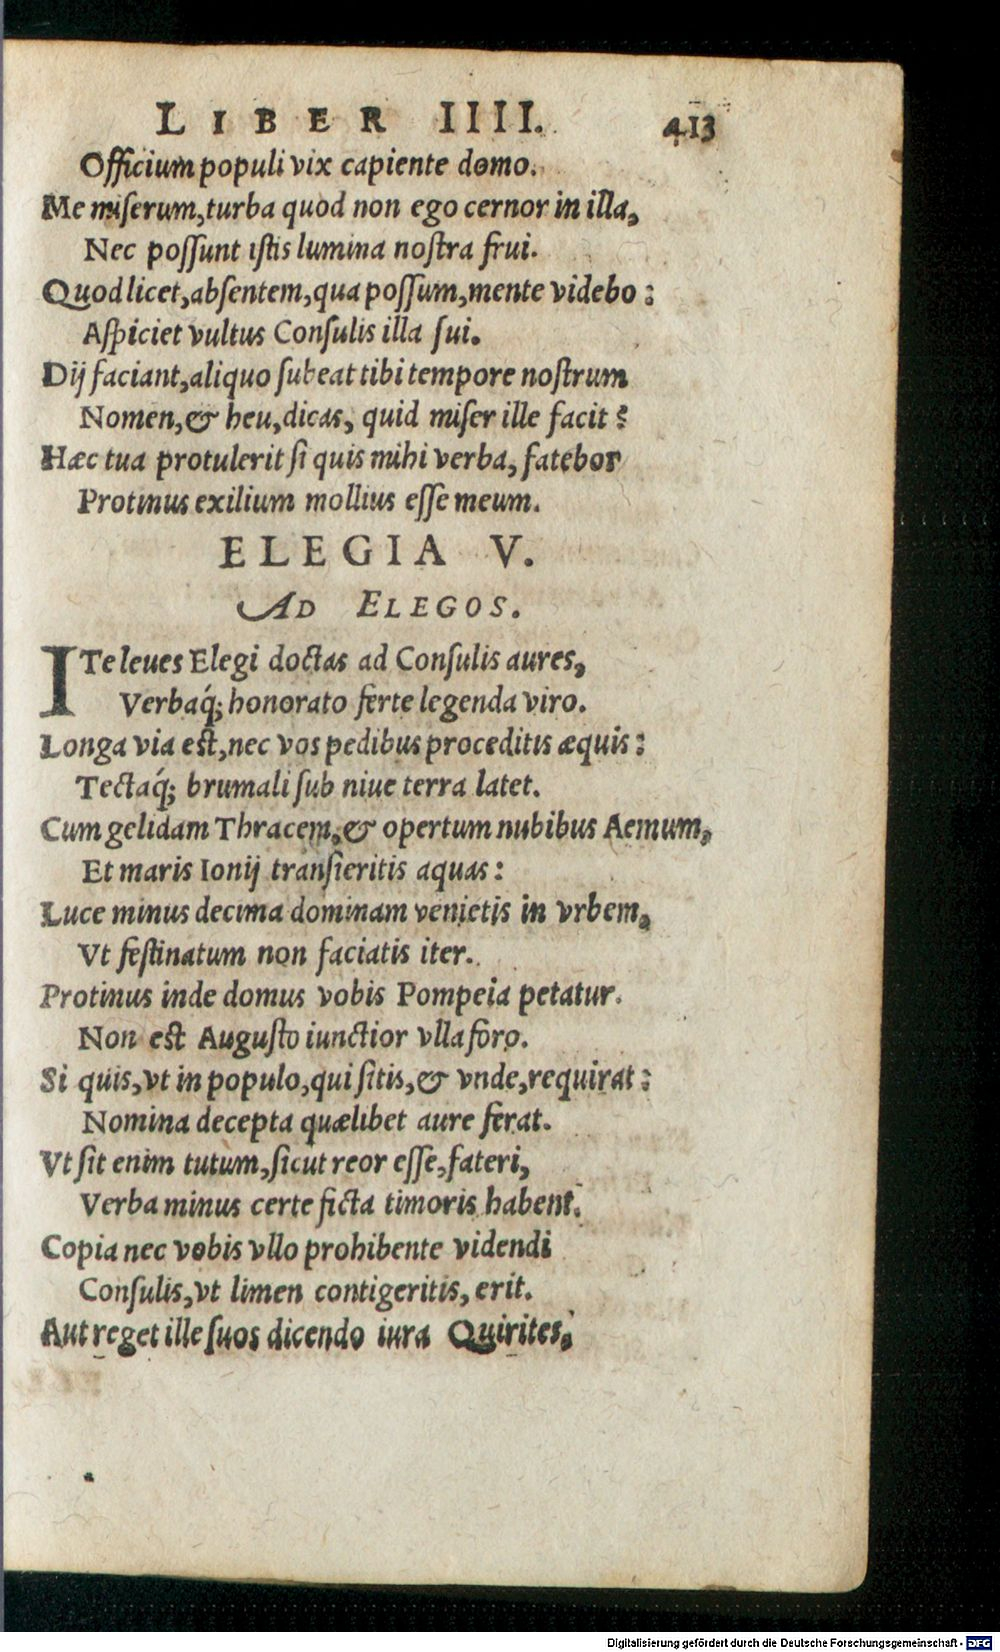 LIBER IIII. 413
Officium populi vix capiente domo.
Me miſerum,turba quod non ego cernor in illa,
Nec poſſunt iſtis lumina noſtra frui.
Quod licet,abſentem,qua poſſum,mente videbo:
Aſpiciet vultus Conſulis illa ſui.
Dij faciant,aliquo ſubeat tibi tempore noſtrum
Nomen,& heu,dicas, quid miſer ille facit?
Hæc tua protulerit ſi quis mihi verba, fatebor
Protinus exilium mollius eſſe meum.
ELEGIA V.
AD ELEGOS.
ITe leues Elegi doctas ad Conſulis aures,
Verbaq́; honorato ferte legenda viro.
Longa via eſt,nec vos pedibus proceditis æquis:
Tectaq́; brumali ſub niue terra latet.
Cum gelidam Thracem,& opertum nubibus Aemum,
Et maris Ionij tranſieritis aquas:
Luce minus decima dominam venietis in vrbem,
Vt feſtinatum non faciatis iter.
Protinus inde domus vobis Pompeia petatur.
Non eſt Auguſto iunctior vlla foro.
Si quis,vt in populo,qui ſitis,& vnde,requirat:
Nomina decepta quælibet aure ferat.
Vt ſit enim tutum,ſicut reor eſſe,fateri,
Verba minus certe ficta timoris habent.
Copia nec vobis vllo prohibente videndi
Conſulis,vt limen contigeritis, erit.
Aut reget ille ſuos dicendo iura Quirites,
Digitalisierung gefördert durch die Deutsche Forschungsgemeinschaft - DFG